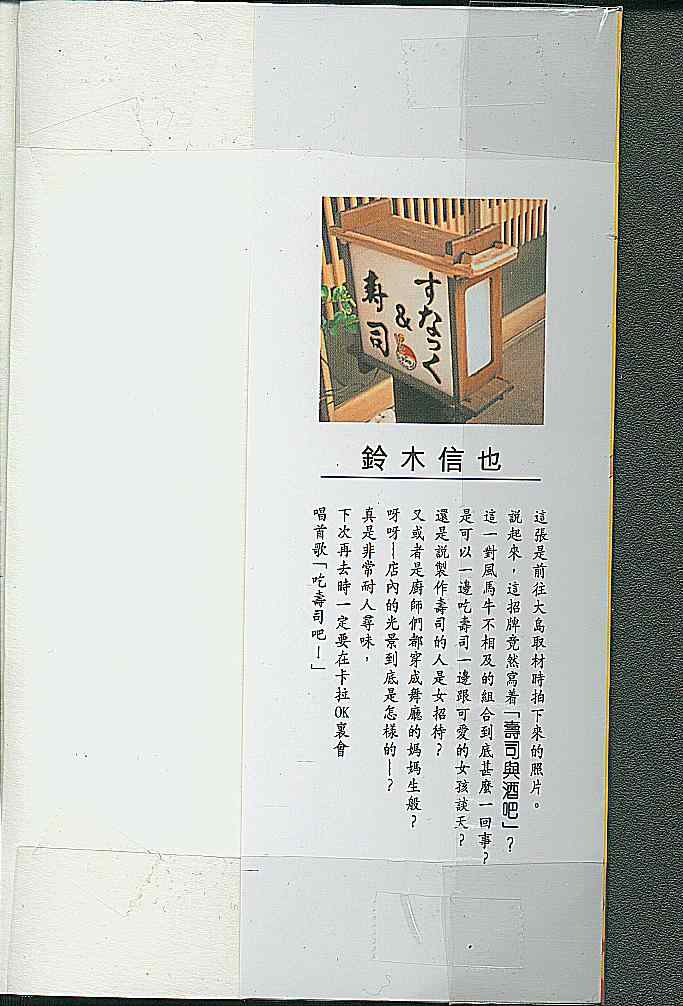 すなっく
&
寿司
鈴木信也
這張是前往大島取材時拍下來的照片。
說起來，這招牌竟然寫着「壽司與酒吧」？
這一對風馬牛不相及的組合到底甚麼一回事？
是可以一邊吃壽司一邊跟可愛的女孩談天？
還是說製作壽司的人是女招待？
又或者是廚師們都穿成舞廳的媽媽生般？
呀呀—店內的光景到底是怎樣的—？
真是非常耐人尋味，
下次再去時一定要在卡拉OK裏會
唱首歌「吃壽司吧—」